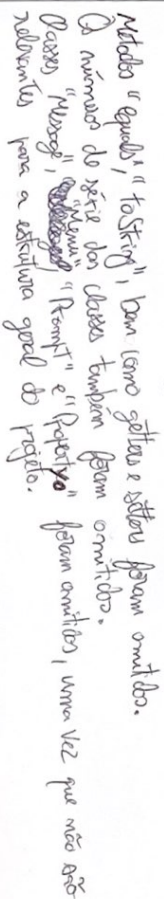 Métodos "equals", "toString", bem como getters e setters foram omitidos.
O número de série das classes também foram omitidos.
Classes "Message", "Menu", "Prompt" e "Property" foram omitidos, uma vez que não são
relevantes para a estrutura geral do projeto.